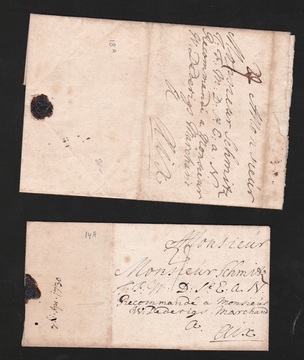 18A
A Monsieur
Monsieur Schmitz
Recommandé a Monsieur
W. Dederigs Marchand
Aix
14A
Monsieur
Monsieur Schmitz
D. S. E. a. N
Recommandé a Monsieur
W. Dederigs Marchand
a
Aix
1730